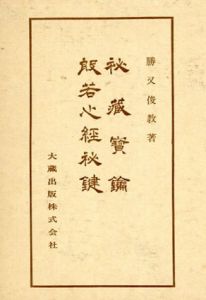 勝又俊教著
秘藏寶鑰
般若心經秘鍵
大蔵出版株式会社